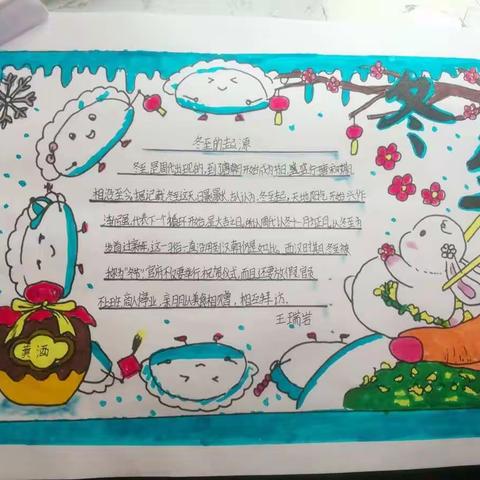 冬至
冬至的起源
冬至是周代出现的,到
相沿至今,据记载:冬至这天日最长,古人认为,冬至起,天地阳气开始兴作
渐强,代表下一个循环开始,是大吉之日,所以周代以冬十一月为正月,以冬至为
岁首过新年,这一习俗一直沿用到汉朝仍是如此,西汉时期,冬至被
称为"冬节"官府不仅要举行祝贺仪式,而且还要放假,官
商人停业,亲朋以美食相赠,相互拜访。
王瑞岩
黄酒